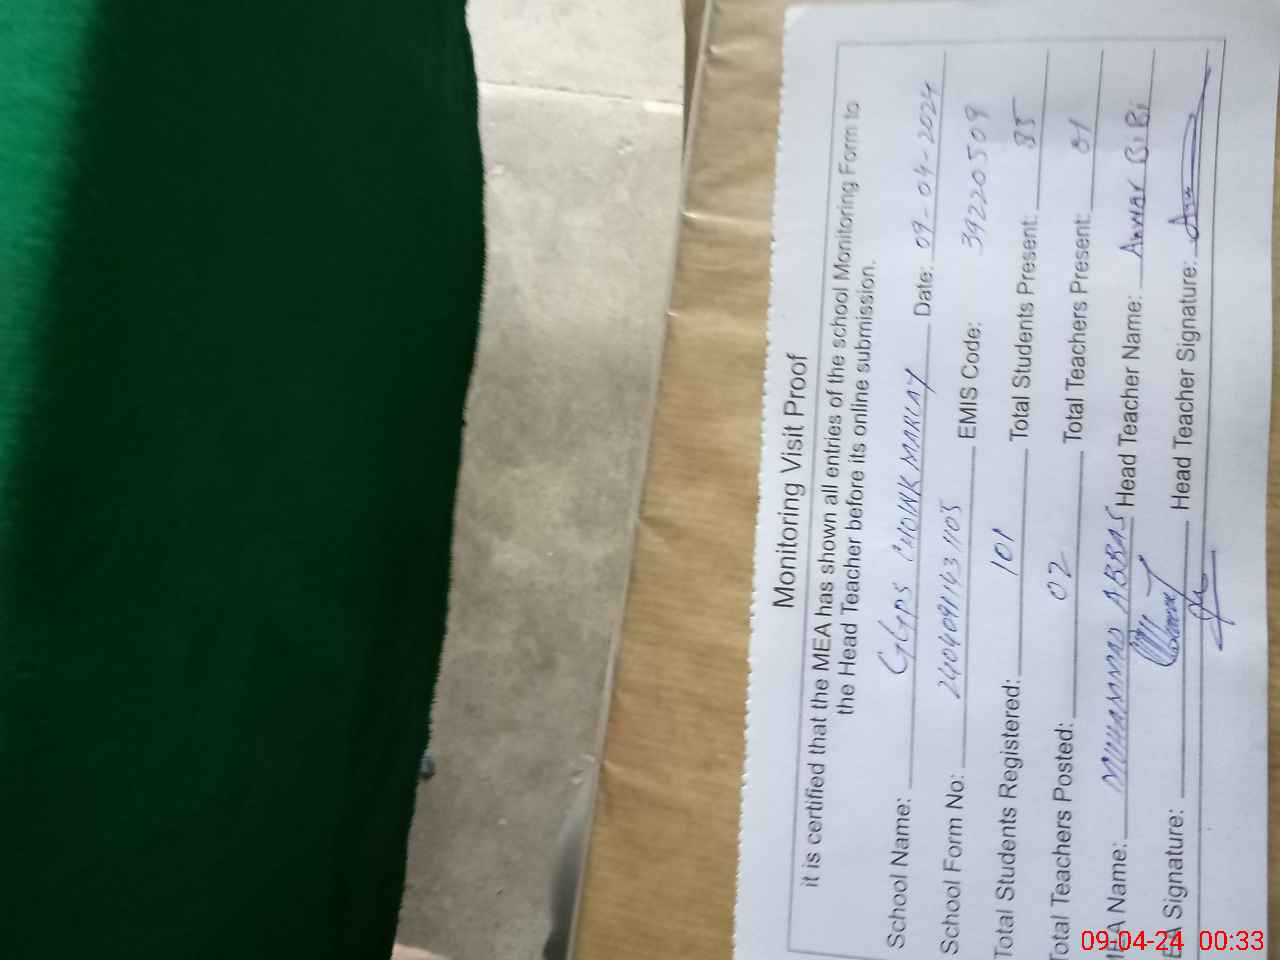 Monitoring Visit Proof
it is certified that the MEA has shown all entries of the school Monitoring Form to
the Head Teacher before its online submission.
School Name: GGPS CHOWK MARLAY Date: 09-04-2024
School Form No: 2404091431105 EMIS Code: 39220509
Total Students Registered: 101 Total Students Present: 85
Total Teachers Posted: 02 Total Teachers Present: 01
MEA Name: MUHAMMAD ABBAS Head Teacher Name: Anwar BiBi
EA Signature: Head Teacher Signature:
09-04-24 00:33